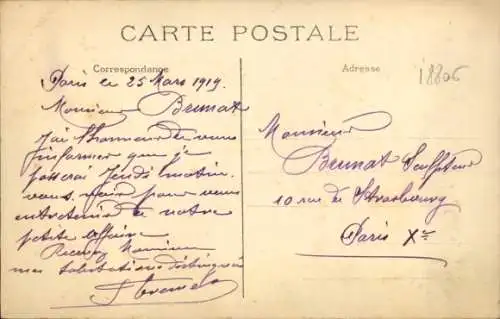 CARTE POSTALE
Correspondance
Adresse
18806
Paris le 25 Mars 1919.
Monsieur Brunat
J'ai l'honneur de vous
informer que je
passerai Jeudi matin
vous voir pour vous
entretenir de notre
petite affaire
Recevez Monsieur
mes salutations distinguées
Monsieur
Brunat Sculpteur
10 rue de Strasbourg
Paris Xe